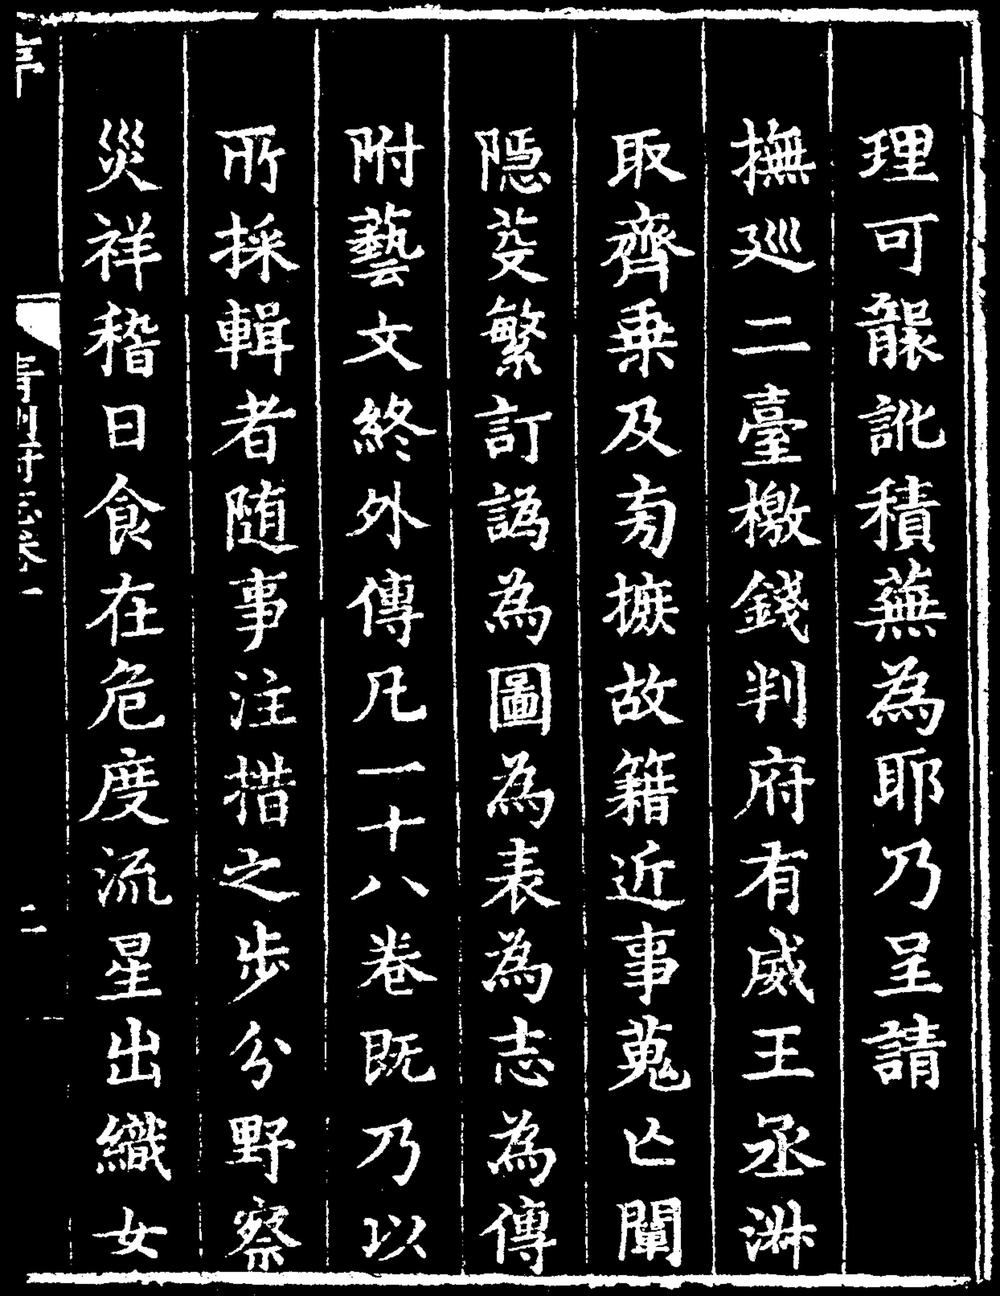 理可龍訛積蕪為耶乃呈請
撫廵二臺檄錢判府有威王丞淋
取齊乗及旁摭故籍近事蒐亡闡
隱芟繁訂譌為圖為表為志為傳
附藝文終外傳凡一十八卷既乃以
所採輯者随事注措之步分野察
災祥稽日食在危度流星出織女
序
青州府志卷一
二